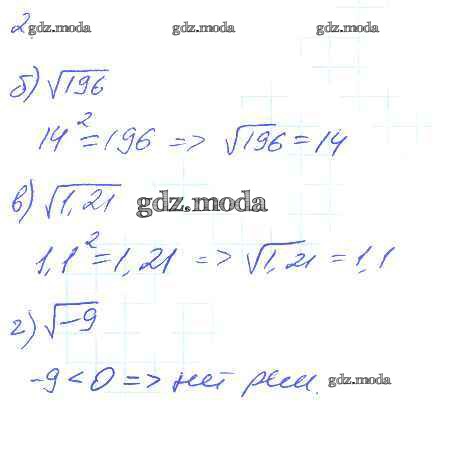 2. gdz.moda gdz.moda gdz.moda
б) √196
14² = 196 => √196 = 14
в) √1,21 gdz.moda
1,1² = 1,21 => √1,21 = 1,1
г) √-9
-9 < 0 => нет реш. gdz.moda